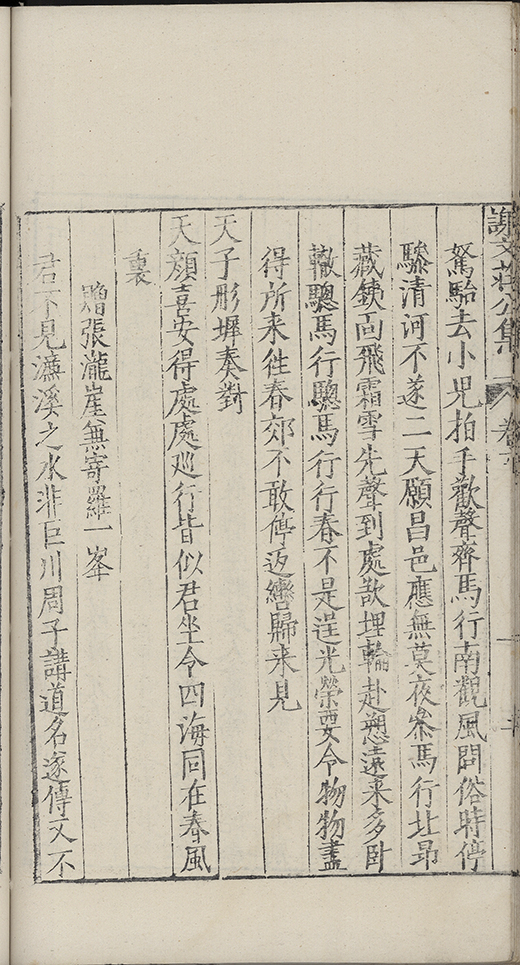 謝文莊公集
駑駘去小兒拍手歡聲齊馬行南觀風問俗時停
驂清河不遂二天願昌邑應無莫夜叅馬行北昂
藏鉄面飛霜雪先聲到處欲埋輪赴愬遠来多卧
轍驄馬行驄馬行行春不是逞光榮要令物物盡
得所来徃春郊不敢停返轡歸来見
天子彤墀奏對
天顔喜安得處處廵行皆似君坐令四海同在春風
裏
贈張瀧崖兼寄羅一峯
君不見濂溪之水非巨川周子講道名遂傳又不